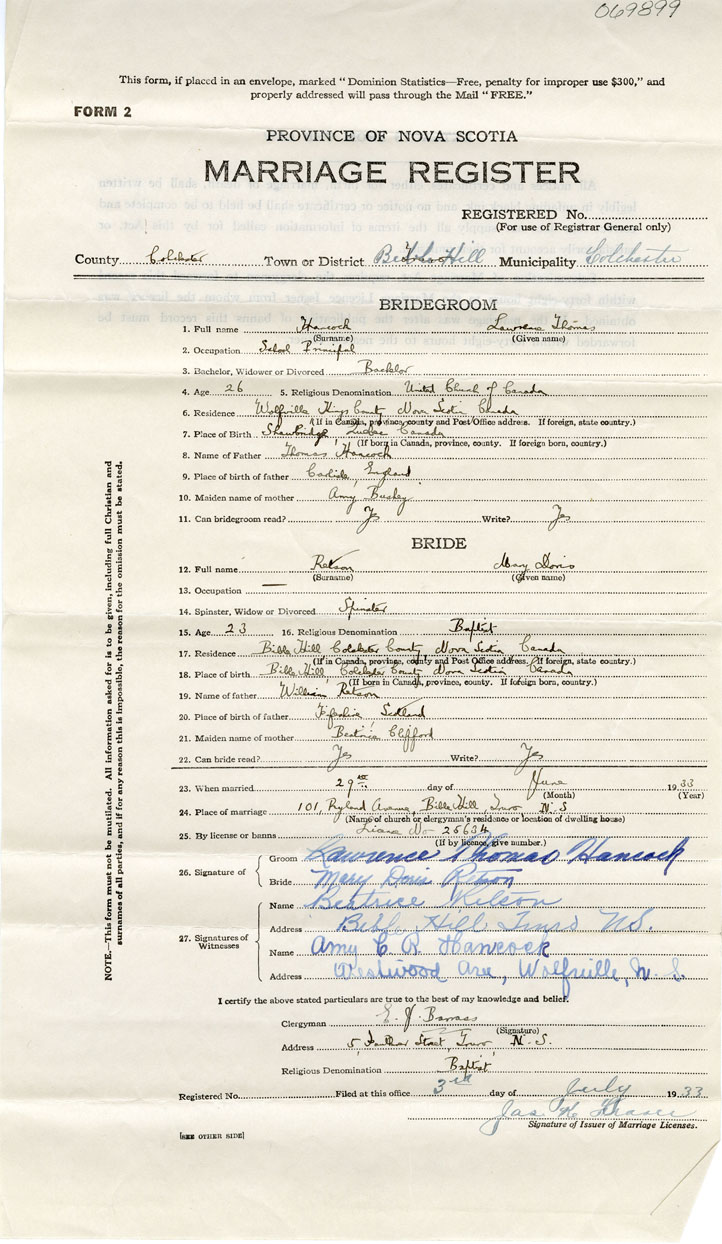 069899
This form, if placed in an envelope, marked "Dominion Statistics—Free, penalty for improper use $300," and
properly addressed will pass through the Mail "FREE."
FORM 2
PROVINCE OF NOVA SCOTIA
MARRIAGE REGISTER
REGISTERED No.
(For use of Registrar General only)
County Colchester Town or District Hill Municipality Colchester
BRIDEGROOM
1. Full name Hancock Lawrence Thomas
(Surname) (Given name)
2. Occupation School Principal
3. Bachelor, Widower or Divorced Bachelor
4. Age 26 5. Religious Denomination United Church of Canada
6. Residence Wolfville Kings County Nova Scotia Canada
(If in Canada, province, county and Post Office address. If foreign, state country.)
7. Place of Birth Shawbridge Quebec Canada
(If born in Canada, province, county. If foreign born, country.)
8. Name of Father Thomas Hancock
9. Place of birth of father Carlisle, England
10. Maiden name of mother Amy
11. Can bridegroom read? Yes Write? Yes
BRIDE
12. Full name Retson Mary Doris
(Surname) (Given name)
13. Occupation —
14. Spinster, Widow or Divorced Spinster
15. Age 23 16. Religious Denomination Baptist
17. Residence Bible Hill Colchester County Nova Scotia Canada
(If in Canada, province, county and Post Office address. If foreign, state country.)
18. Place of birth Bible Hill Colchester County Nova Scotia Canada
(If born in Canada, province, county. If foreign born, country.)
19. Name of father William Retson
20. Place of birth of father Fifeshire Scotland
21. Maiden name of mother Beatrice Clifford
22. Can bride read? Yes Write? Yes
23. When married 29 day of June 1933
(Month) (Year)
24. Place of marriage 101, Ryland Avenue, Bible Hill, Truro N.S
(Name of church or clergyman's residence or location of dwelling house)
25. By license or banns License No 25634
(If by licence, give number.)
26. Signature of
Groom Lawrence Thomas Hancock
Bride Mary Doris Retson
27. Signatures of Witnesses
Name Beatrice Retson
Address Bible Hill Truro N.S.
Name Amy E. R. Hancock
Address Westwood Ave, Wolfville, N.S.
I certify the above stated particulars are true to the best of my knowledge and belief.
Clergyman E. J. Barrass
(Signature)
Address 5 Street, Truro N.S.
Religious Denomination Baptist
Registered No. Filed at this office 3rd day of July 1933
Jas Fraser
Signature of Issuer of Marriage Licenses.
[SEE OTHER SIDE]
NOTE.—This form must not be mutilated. All information asked for is to be given, including full Christian and
surnames of all parties, and if for any reason this is impossible, the reason for the omission must be stated.